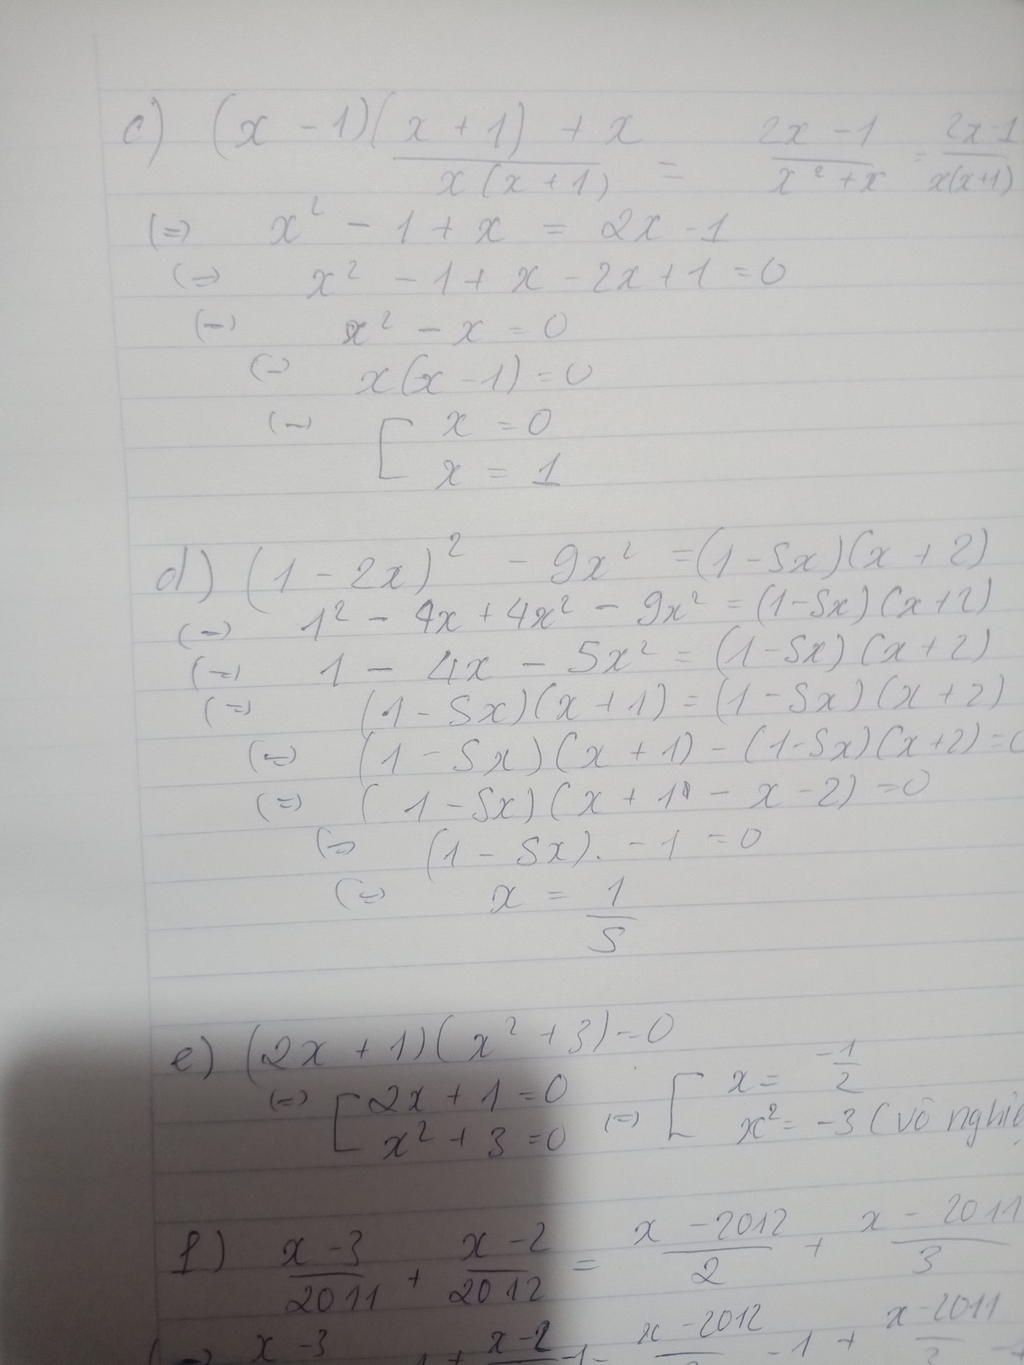 c) (x - 1)(x + 1) + x / x(x + 1) = 2x - 1 / x² + x = 2x-1 / x(x+1)
(=) x² - 1 + x = 2x - 1
(=) x² - 1 + x - 2x + 1 = 0
(=) x² - x = 0
(=) x(x - 1) = 0
(=) [ x = 0
x = 1
d) (1 - 2x)² - 9x² = (1 - 5x)(x + 2)
(=) 1² - 4x + 4x² - 9x² = (1-5x)(x+2)
(=) 1 - 4x - 5x² = (1-5x)(x+2)
(=) (1 - 5x)(x + 1) = (1 - 5x)(x + 2)
(=) (1 - 5x)(x + 1) - (1-5x)(x+2) = 0
(=) (1 - 5x)(x + 1 - x - 2) = 0
(=) (1 - 5x). - 1 = 0
(=) x = 1 / 5
e) (2x + 1)(x² + 3) = 0
(=) [ 2x + 1 = 0 (=) [ x = -1/2
x² + 3 = 0 x² = -3 (vô
f) x - 3 / 2011 + x - 2 / 2012 = x - 2012 / 2 + x - 2011 / 3
x - 3 x - 2 x - 2012 - 1 + x - 2011